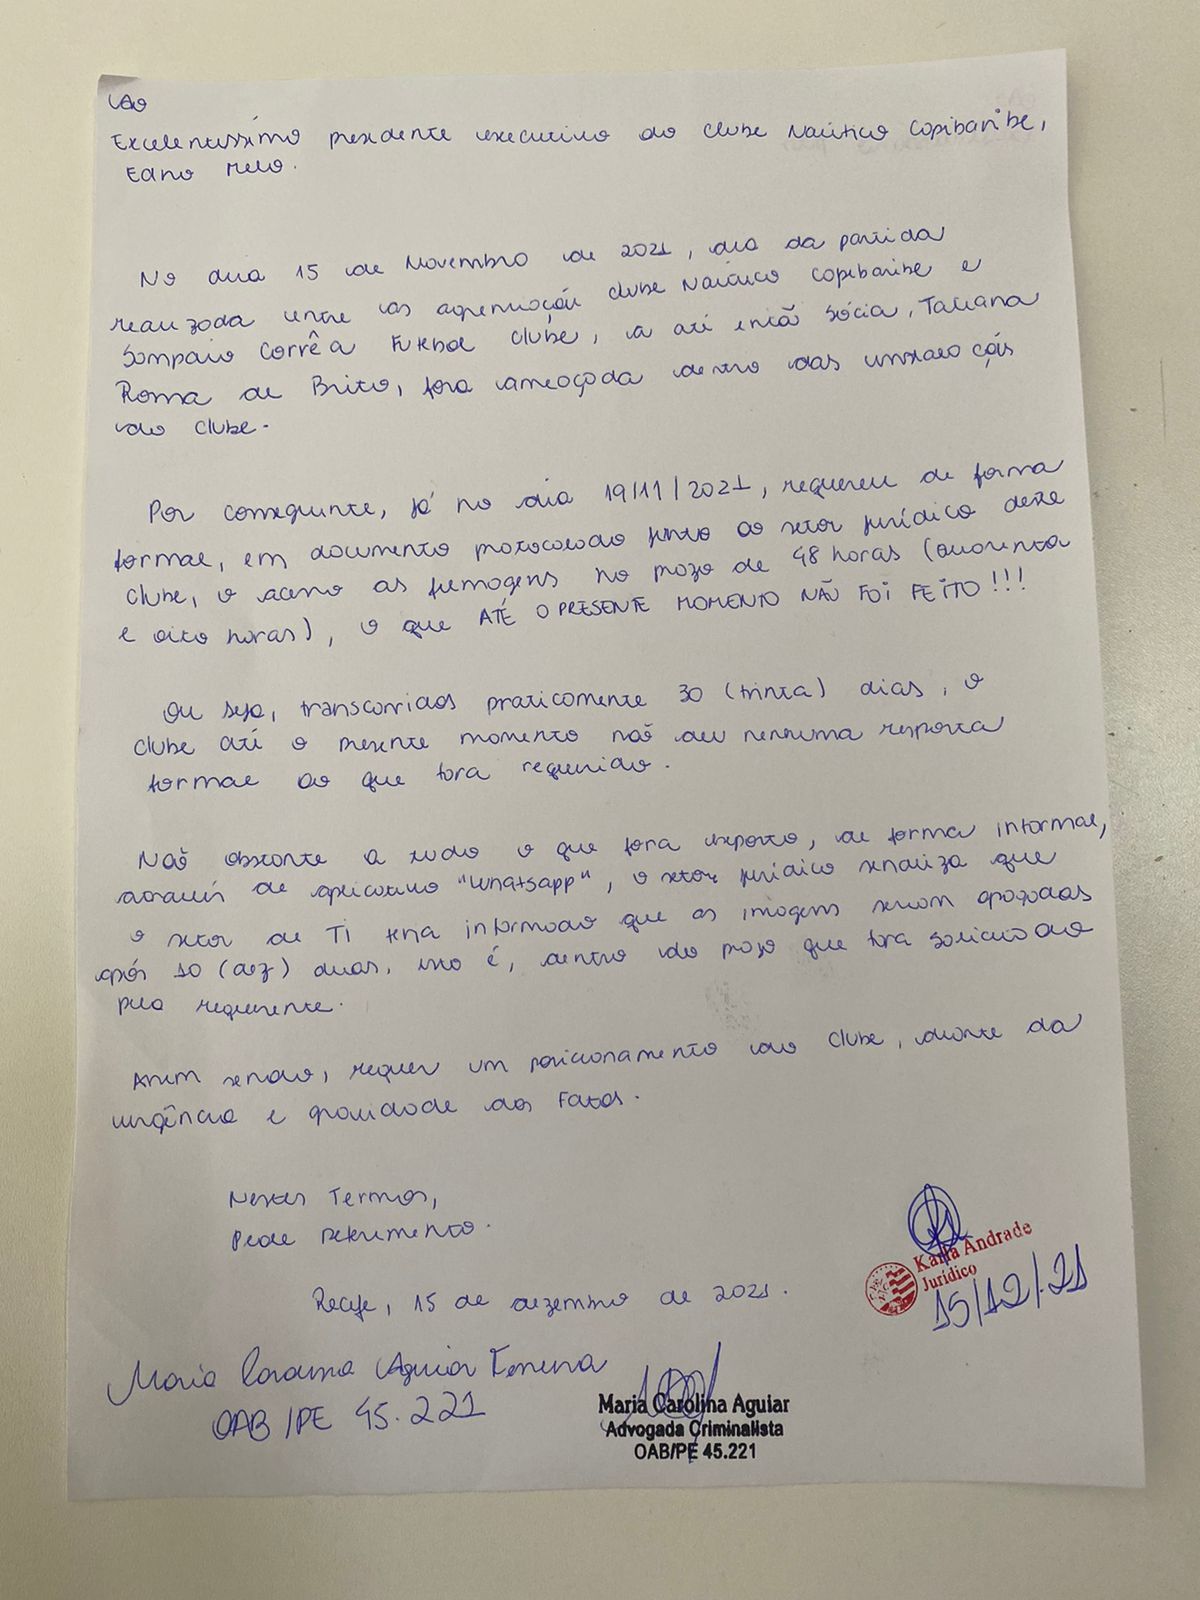 Ao
Excelentíssimo presidente executivo do clube Naútico Capibaribe,
Edno Melo.
No dia 15 de Novembro de 2021, dia da partida
realizada entre as agremiações clube Naútico Capibaribe e
Sampaio Corrêa Futebol Clube, a até então sócia, Tatiana
Roma de Brito, fora ameaçada dentro das instalações
do clube.
Por conseguinte, já no dia 19/11/2021, requereu de forma
formal, em documento protocolado junto ao setor jurídico deste
clube, o acesso as filmagens no prazo de 48 horas (quarenta
e oito horas), o que ATÉ O PRESENTE MOMENTO NÃO FOI FEITO!!!
Ou seja, transcorridos praticamente 30 (trinta) dias, o
clube até o presente momento não deu nenhuma resposta
formal ao que fora requerido.
Não obstante a tudo o que fora exposto, de forma informal,
através de aplicativo "whatsapp", o setor jurídico sinaliza que
o setor de TI teria informado que as imagens seriam apagadas
após 10 (dez) dias, isso é, dentro do prazo que fora solicitado
pela requerente.
Assim sendo, requer um posicionamento do clube, diante da
urgência e gravidade dos fatos.
Nestes Termos,
Pede Deferimento.
Recife, 15 de dezembro de 2021.
Karla Andrade
Jurídico
15/12/21
Maria Carolina Aguiar Ferreira
OAB/PE 45.221
Maria Carolina Aguiar
Advogada Criminalista
OAB/PE 45.221